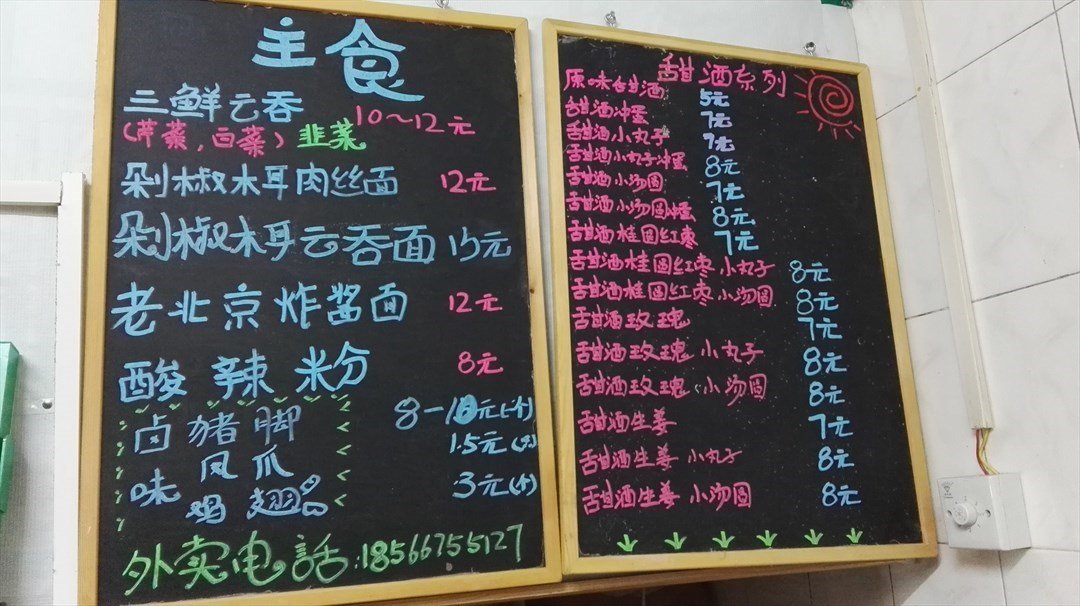 主食
三鲜云吞 10～12元
(芹菜,白菜) 韭菜
剁椒木耳肉丝面 12元
剁椒木耳云吞面 15元
老北京炸酱面 12元
酸辣米分 8元
卤味
猪脚 8-10元(个)
凤爪 1.5元(只)
鸡翅 3元(个)
外卖电话:18566755127
甜酒系列
原味甜酒 5元
甜酒冲蛋 7元
甜酒小丸子 7元
甜酒小丸子冲蛋 8元
甜酒小汤圆 7元
甜酒小汤圆冲蛋 8元
甜酒桂圆红枣 7元
甜酒桂圆红枣小丸子 8元
甜酒桂圆红枣小汤圆 8元
甜酒玫瑰 7元
甜酒玫瑰小丸子 8元
甜酒玫瑰小汤圆 8元
甜酒生姜 7元
甜酒生姜小丸子 8元
甜酒生姜小汤圆 8元